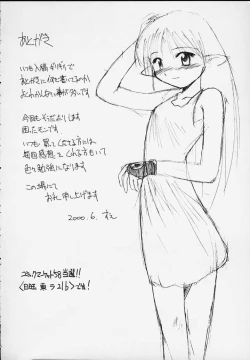 あとがき
いつも入稿ギリギリで
あとがきに何を書いてるのか
よくわかんない事が多いです
今回もそのようです
困ったモンです
いつも買ってくださる方には
毎回感想をくれる方もいて
色々勉強になります
この場にて
お礼申し上げます
2000.6.
コミックマーケット58当選!!